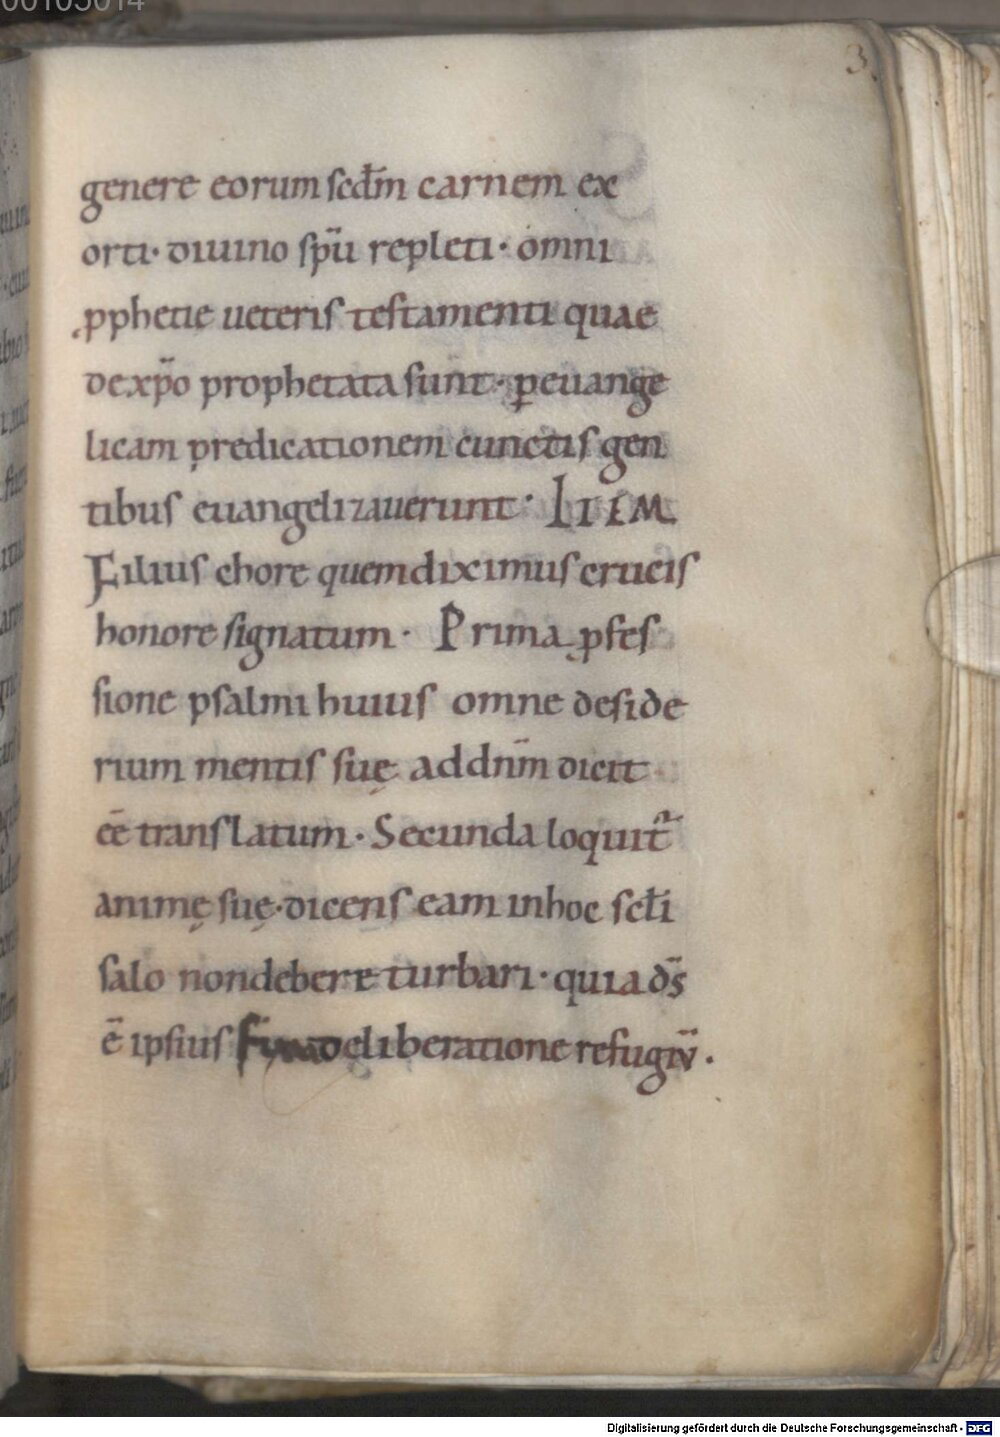 00105014
3
genere eorum scđm carnem ex
orti· diuino sp̄u repleti· omni
ꝓphetie ueteris testamenti quae
de xp̄o prophetata sunt· ꝑ euange
licam predicationem cunctis gen
tibus euangelizauerunt· ITEM
Filius chore quem diximus crucis
honore signatum· Prima ꝓfes
sione psalmi huius omne deside
rium mentis suę ad dnm̄ dicit
eē translatum· Secunda loquit᷑
animę suę· dicens eam in hoc scłi
salo non debere turbari· quia d̄s
ē ipsius deliberatione refugiū·
Digitalisierung gefördert durch die Deutsche Forschungsgemeinschaft · DFG